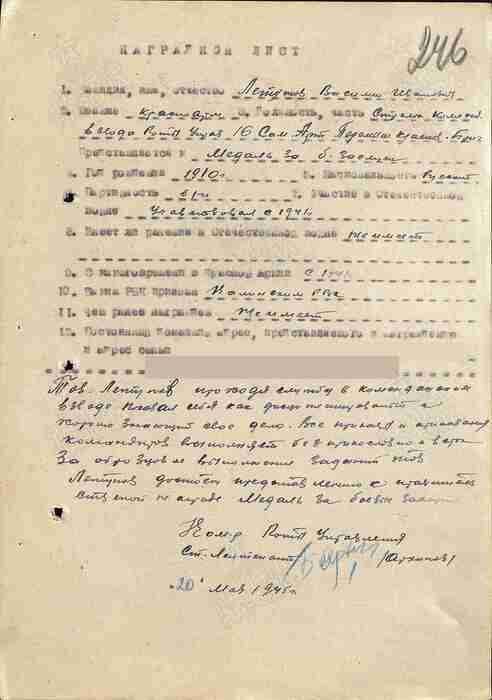 246
НАГРАДНОЙ ЛИСТ
1. Фамилия, имя, отчество Василий Иванович
2. Звание Красноарм. 3. Должность, часть Стрелок команд.
взвода Роты Управ 16 Сам. Арт. Бриг.
Представляется к Медаль За б. заслуги
4. Год рождения 1910г 5. Национальность Русский
6. Партийность б/п 7. Участие в Отечественной
войне Участвовал с 1941г
8. Имеет ли ранения в Отечественной войне не имеет
9. С какого времени в Красной Армии с 1941
10. Каким РВК призван РВК
11. Чем ранее награжден Не имеет
12. Постоянный домашний адрес, представляемого к награждению
и адрес семьи
Тов. проходя службу в комендантском
взводе показал себя как дисциплинированный и
хорошо знающий свое дело. Все приказы и приказания
командиров выполняет беспрекословно и в срок
За образцовое выполнение заданий тов
достоин представления к правитель
ственной награде Медаль за боевые заслуги
Комд. Роты Управления
Ст. Лейтенант (Архипов)
"20" Мая 1945г.